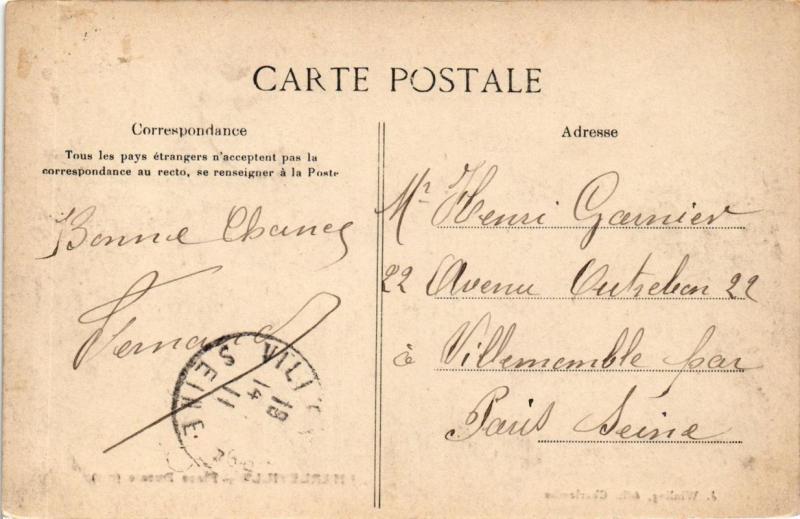 CARTE POSTALE
Correspondance
Tous les pays étrangers n'acceptent pas la
correspondance au recto, se renseigner à la Poste
Bonne Chance
Fernand
Adresse
Mr Henri Garnier
22 Avenu Outrebon 22
à Villemomble par
Paris Seine
SEINE
19
14
11